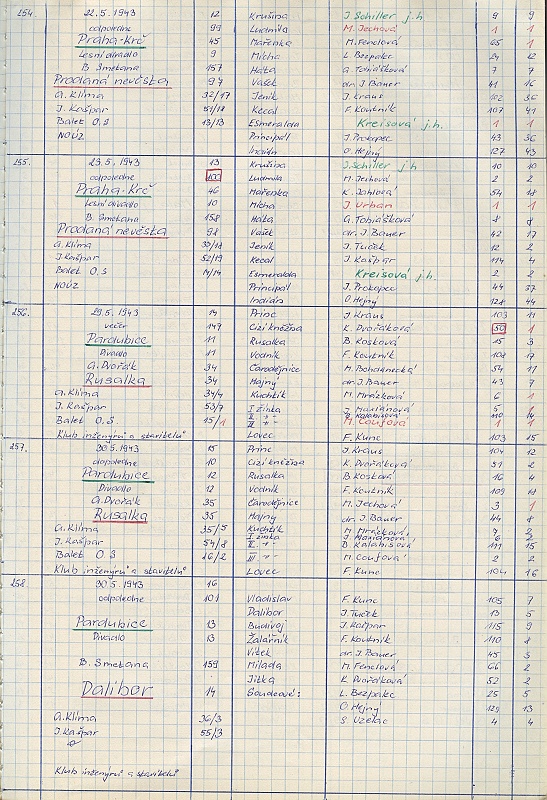 254. 22.5.1943 12 Krušina J. Schiller j.h. 9 9
odpoledne 99 Ludmila M. Jechová 1 1
Praha-Krč 45 Mařenka M. Fenclová 65 1
Lesní divadlo 9 Mícha L. Bezpalec 24 12
B. Smetana 157 Háta G. Tobiášková 7 7
Prodaná nevěsta 97 Vašek dr. J Bauer 41 16
A. Klíma 32/17 Jeník J. Kraus 102 36
J. Kašpar 51/18 Kecal F. Koutník 107 41
Balet O.S 13/13 Esmeralda Kreisová j.h. 1 1
NOÚZ Principál J. Prokopec 43 36
Indián O. Hejný 127 43
255. 23.5.1943 13 Krušina J. Schiller j.h 10 10
odpoledne 100 Ludmila M. Jechová 2 2
Praha-Krč 46 Mařenka K. Jahlová 54 18
Lesní divadlo 10 Mícha J Urban 1 1
B. Smetana 158 Háta G. Tobiášková 8 8
Prodaná nevěsta 98 Vašek dr. J. Bauer 42 17
A. Klíma 33/18 Jeník J. Tuček 12 2
J. Kašpar 52/19 Kecal J. Kašpar 114 4
Balet O.S 14/14 Esmeralda Kreisová j.h. 2 2
NOÚZ Principál J. Prokopec 44 37
Indián O. Hejný 128 44
256. 29.5.1943 14 Princ J. Kraus 103 11
večer 149 Cizí kněžna K. Dvořáková 50 1
Pardubice 11 Rusalka B. Kosková 15 3
Divadlo 11 Vodník F. Koutník 108 17
A. Dvořák 34 Čarodějnice M. Bohdanecká 54 11
Rusalka 34 Hajný dr. J. Bauer 43 7
A. Klíma 34/4 Kuchtík M. Mrázková 6 1
J. Kašpar 53/7 I žínka J. Mariánová 5 1
Balet O.S. 15/1 II -"- B. Kalabisová 110 14
III -"- M. Coufová 1 1
Klub inženýrů a stavitelů Lovec F. Kunc 103 15
257. 30.5.1943 15 Princ J. Kraus 104 12
dopoledne 10 Cizí kněžna K. Dvořáková 51 2
Pardubice 12 Rusalka B. Kosková 16 4
Divadlo 12 Vodník F. Koutník 109 18
A. Dvořák 35 Čarodějnice M. Jechová 3 1
Rusalka 35 Hajný dr. J Bauer 44 8
A. Klíma 35/5 Kuchtík M. Mrázková
J. Kašpar 54/8 I žínka J. Mariánová
II -"- B Kalabisová 111 15
Balet O S 16/2 III -"- M. Coufová 2 2
Klub inženýrů a stavitelů Lovec F. Kunc 104 16
258 30.5.1943 16
odpoledne 101 Vladislav F. Kunc 105 7
Dalibor J. Tuček 13 5
Pardubice 13 Budivoj J. Kašpar 115 9
Divadlo 13 Žalářník F. Koutník 110 8
Vítek dr. J. Bauer 45 3
B. Smetana 159 Milada M. Fenclová 66 2
Jitka K. Dvořáková 52 2
Dalibor 14 Soudcové: L. Bezpalec 25 5
O Hejný 129 13
A. Klíma 36/3 S. Uzelac 4 4
J. Kašpar 55/3
Klub inženýrů a stavitelů